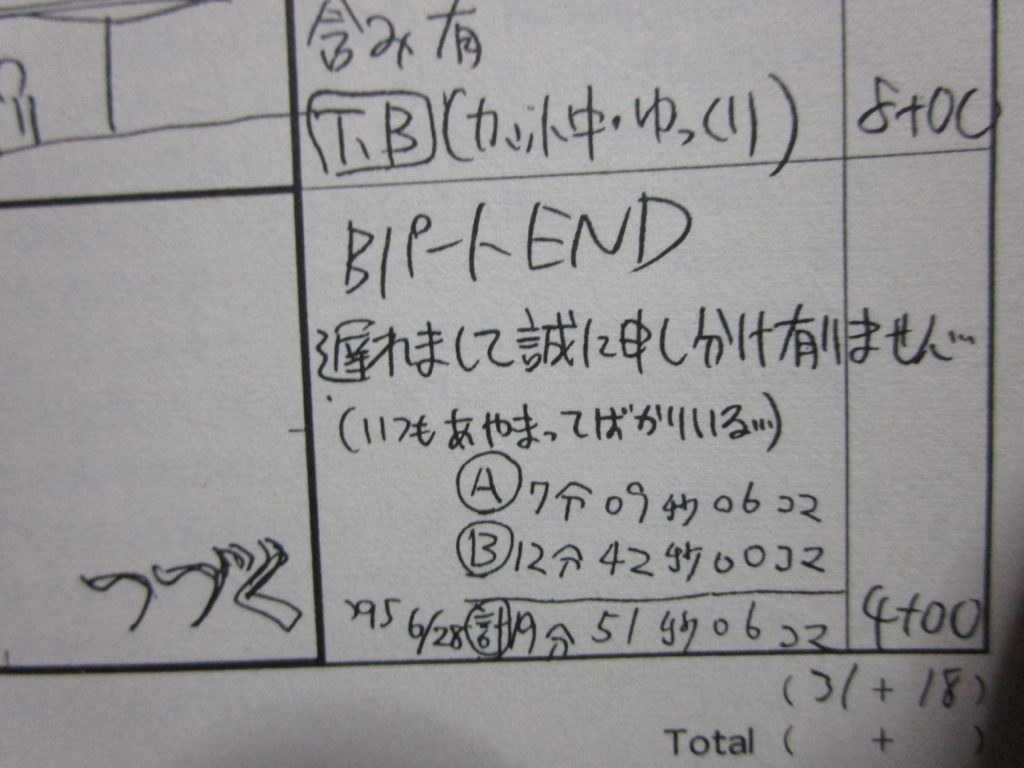 含み有
T.B (カット中・ゆっくり) 8+00
BパートEND
遅れまして誠に申し分け有りません…
(いつもあやまってばかりいる…)
Ⓐ 7分09秒06コマ
Ⓑ 12分42秒00コマ
'95 6/28 計 19分51秒06コマ 4+00
つづく
(31+18)
Total ( + )